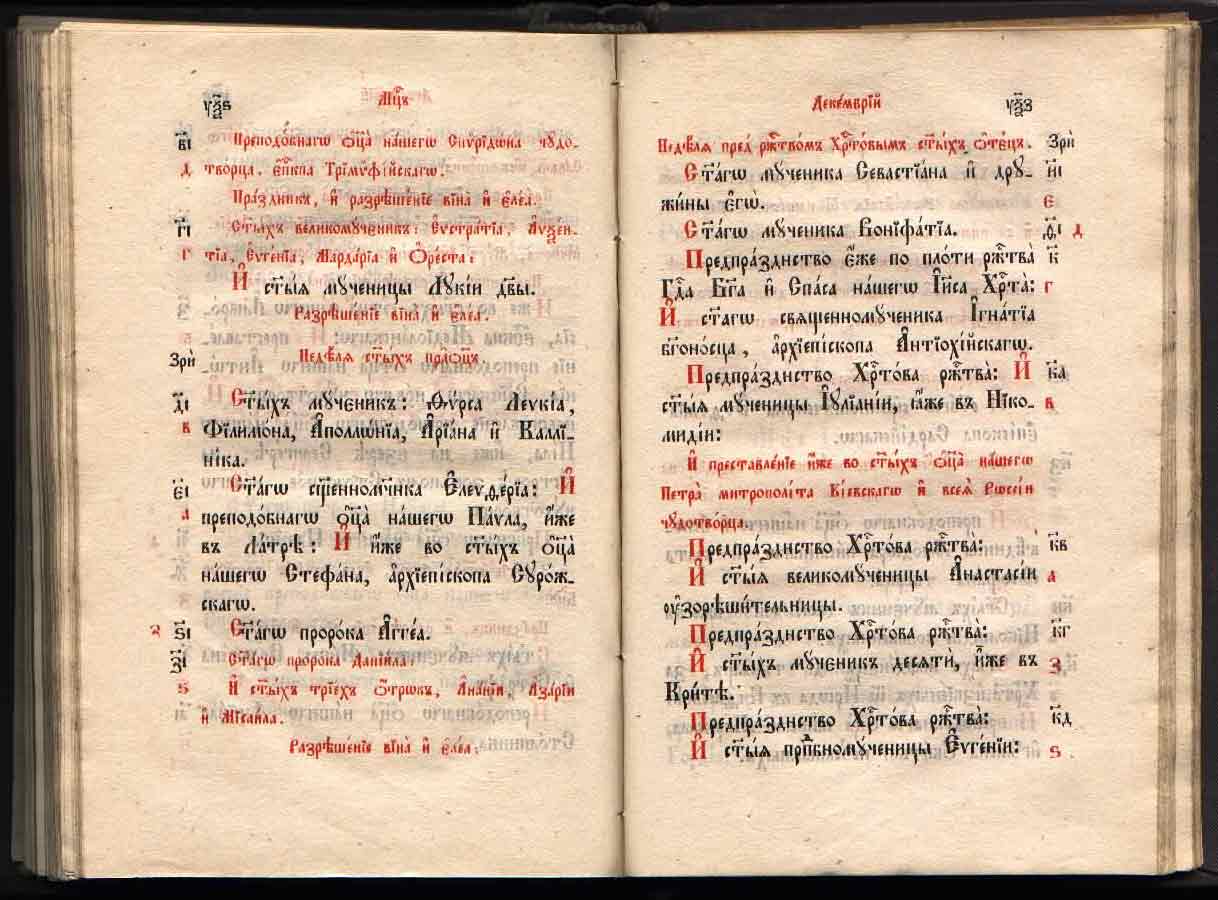 Мцⷭ҇ъ
в҃і Преподо́бнагѡ ѻ҆ц҃а̀ на́шегѡ Спѷрїдѡ́на чꙋдо-
д творца̀. є҆пⷭ҇кпа Трїмѷфі́йскагѡ.
Пра́здникъ, и҆ разрѣше́нїе вїна̀ и҆ є҆ле́а.
г҃і Ст҃ы́хъ великомꙋ́ченикъ: Е҆ѵстра́тїа, А҆ѵѯе́н-
г тїа, Е҆ѵге́нїа, Марда́рїа и҆ Ѻ҆ре́ста:
И҆ ст҃ы́ѧ мꙋ́ченицы Лꙋкі́и дв҃ы.
Разрѣше́нїе вїна̀ и҆ є҆ле́а.
Зрѝ Недѣ́лѧ ст҃ы́хъ пра́ѻц҃ъ
д҃і Ст҃ы́хъ мꙋ́ченикъ: Ѳѵ́рса Леѵкі́а,
в Фїлимо́на, А҆поллѡ́нїа, А҆рїа́на и҆ Каллї-
ні́ка.
є҃і Ст҃а́гѡ сщ҃енномч҃ника Е҆леѵѳе́рїа: И҆
а преподо́бнагѡ ѻ҆ц҃а̀ на́шегѡ Па́ѵла, и҆́же
въ Ла́трѣ: И҆ и҆́же во ст҃ы́хъ ѻ҆ц҃а̀
на́шегѡ Стефа́на, а҆рхїепі́скопа Сꙋро́ж-
скагѡ.
з ѕ҃і Ст҃а́гѡ проро́ка А҆гге́а.
з҃і Ст҃а́гѡ проро́ка Данїи́ла:
ѕ И҆ ст҃ы́хъ трїе́хъ ѻ҆́трѡкъ, А҆на́нїи, А҆за́рїи
и҆ Мїсаи́ла.
Разрѣше́нїе вїна̀ и҆ є҆ле́а:
Деке́мврїй
Недѣ́лѧ пред̾ ржⷭ҇тво́мъ Хрⷭ҇то́вымъ ст҃ы́хъ ѻ҆те́цъ. Зрѝ
Ст҃а́гѡ мꙋ́ченика Севастїа́на и҆ дрꙋ- и҃і
жи́ны є҆гѡ̀. є
Ст҃а́гѡ мꙋ́ченика Вонїфа́тїа. ѳ҃і д
Предпра́зднство є҆́же по пло́ти ржⷭ҇тва̀ к҃
Гдⷭ҇а Бг҃а и҆ Спа́са на́шегѡ І҆и҃са Хрⷭ҇та̀: г
И҆ ст҃а́гѡ свѧщенномꙋ́ченика І҆гна́тїа
бг҃оно́сца, а҆рхїепі́скопа А҆нтїохі́йскагѡ.
Предпра́зднство Хрⷭ҇то́ва ржⷭ҇тва̀: И҆ к҃а
ст҃ы́ѧ мꙋ́ченицы І҆ꙋлїані́и, ꙗ҆́же въ Нїко- в
миді́и:
И҆ преставле́нїе и҆́же во ст҃ы́хъ ѻ҆ц҃а̀ на́шегѡ
Петра̀ митрополі́та Кі́евскагѡ и҆ всеѧ̀ Рѡссі́и
чꙋдотво́рца.
Предпра́зднство Хрⷭ҇то́ва ржⷭ҇тва̀: к҃в
И҆ ст҃ы́ѧ великомꙋ́ченицы А҆настасі́и а
ᲂу҆зорѣши́тельницы.
Предпра́зднство Хрⷭ҇то́ва ржⷭ҇тва̀: к҃г
И҆ ст҃ы́хъ мꙋ́ченикъ десѧтѝ, и҆́же въ з
Кри́тѣ.
Предпра́зднство Хрⷭ҇то́ва ржⷭ҇тва̀: к҃д
И҆ ст҃ы́ѧ прпⷣбномꙋ́ченицы Е҆ѵге́нїи: ѕ